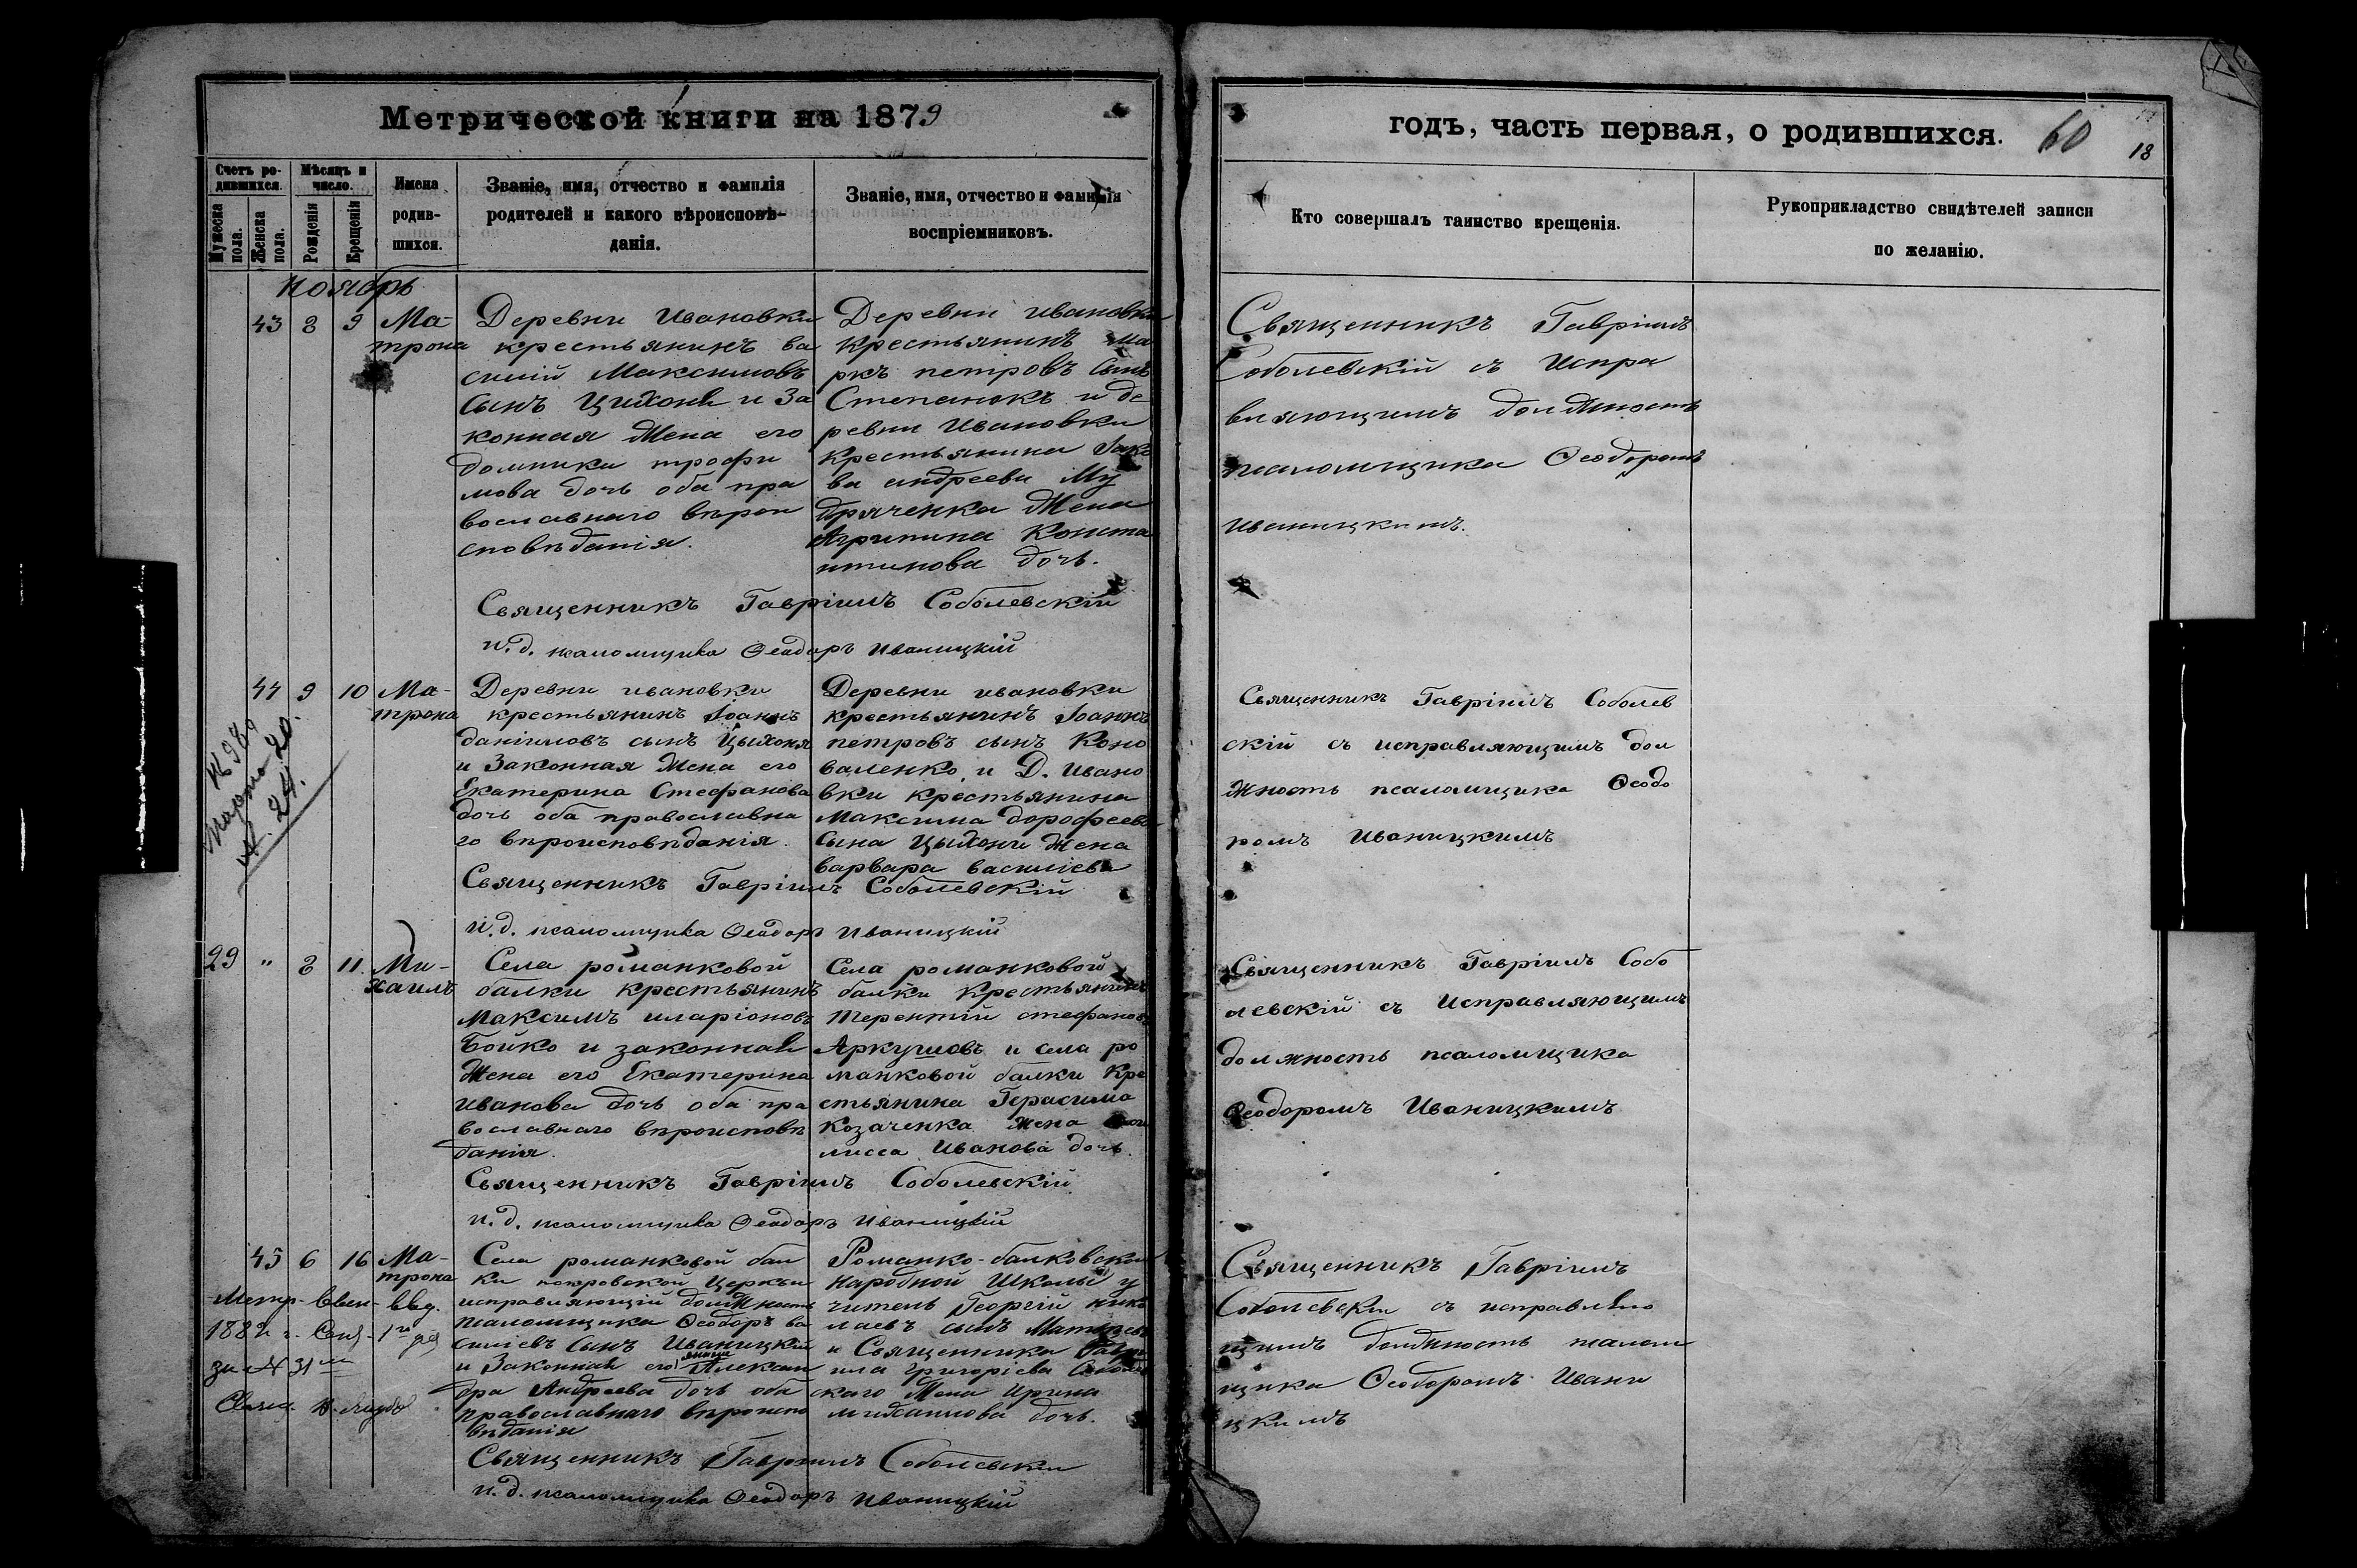 Метрической книги на 1879
годъ, часть первая, о родившихся.
60
18
Счетъ родившихся.
Мужеска пола.
Женска пола.
Мѣсяцъ и число.
Рожденія
Крещенія
Имена родившихся.
Званіе, имя, отчество и фамилія
родителей и какого вѣроисповѣ-
данія.
Званіе, имя, отчество и фамилія
воспріемниковъ.
Кто совершалъ таинство крещенія.
Рукоприкладство свидѣтелей записи
по желанію.
Ноябрь
43 8 9 Ма-
трона
Деревни Ивановки
крестьянинъ ва
силій Максимовъ
сынъ Цихоня и За
конная Жена его
домника трофи
мова дочь оба пра
вославнаго вѣрои
сповѣданія.
Деревни ивановки
крестьянинъ Ма
ркъ петровъ сынъ
Степанокъ и де
ревни Ивановки
крестьянина Іако
ва андреева Му
дряченка Жена
Агрипина Конста
нтинова дочь.
Священникъ Гавріилъ
Соболевскій съ Испра
вляющимъ должность
псаломщика Ѳеодоромъ
иваницкимъ.
Священникъ Гавріилъ Соболевскій
и.д. псаломщика Ѳеодоръ Иваницкій
44 9 10 Ма-
трона
Деревни ивановки
крестьянинъ Іоаннъ
даніиловъ сынъ Цыхоня
и Законная Жена его
Екатерина Стефанова
дочь оба православна
го вѣроисповѣданія.
Деревни ивановки
крестьянинъ Іоаннъ
петровъ сынъ Коно
валенко, и Д. Ивано
вки крестьянина
Максима дорофеева
сына Цыхони Жена
варвара василіева
Священникъ Гавріилъ Соболев
скій съ исправляющимъ дол
жность псаломщика Ѳеодо
ромъ Иваницкимъ
Священникъ Гавріилъ Соболевскій
и.д. псаломщика Ѳеодоръ Иваницкій
марта 20.
№ 24.
29 " 8 11. Ми-
хаилъ
Села романковой
балки крестьянинъ
Максимъ иларіоновъ
Бойко и законная
Жена его Екатерина
Иванова дочь оба пра
вославнаго вѣроисповѣ
данія.
Села романковой
балки Крестьянинъ
терентій стефановъ
Аркушовъ и села ро
манковой балки Кре
стьянина Герасима
Козаченка Жена
лисса Иванова дочь.
Священникъ Гавріилъ Собо
левскій съ Исправляющимъ
должность псаломщика
Ѳеодоромъ Иваницкимъ
Священникъ Гавріилъ Соболевскій
и.д. псаломщика Ѳеодоръ Иваницкій
45 6 16 Ма-
трона
Села романковой бал
ки покровской Церкви
исправляющій должность
псаломщика Ѳеодоръ ва
силіевъ сынъ Иваницкій
и Законная его жена Алексан
дра Андреева дочь оба
православнаго вѣроиспо
вѣданія
Романко-балковской
народной Школы у
читель Георгій нико
лаевъ сынъ
и Священника Гаврі
ила григоріева Соболев
скаго Жена Ирина
михаилова дочь.
Священникъ Гавріилъ
Соболевскій съ исправляю
щимъ должность псалом
щика Ѳеодоромъ Ивани
цкимъ
1882 г.
за № 31
Священникъ Гавріилъ Соболевскій
и.д. псаломщика Ѳеодоръ Иваницкій